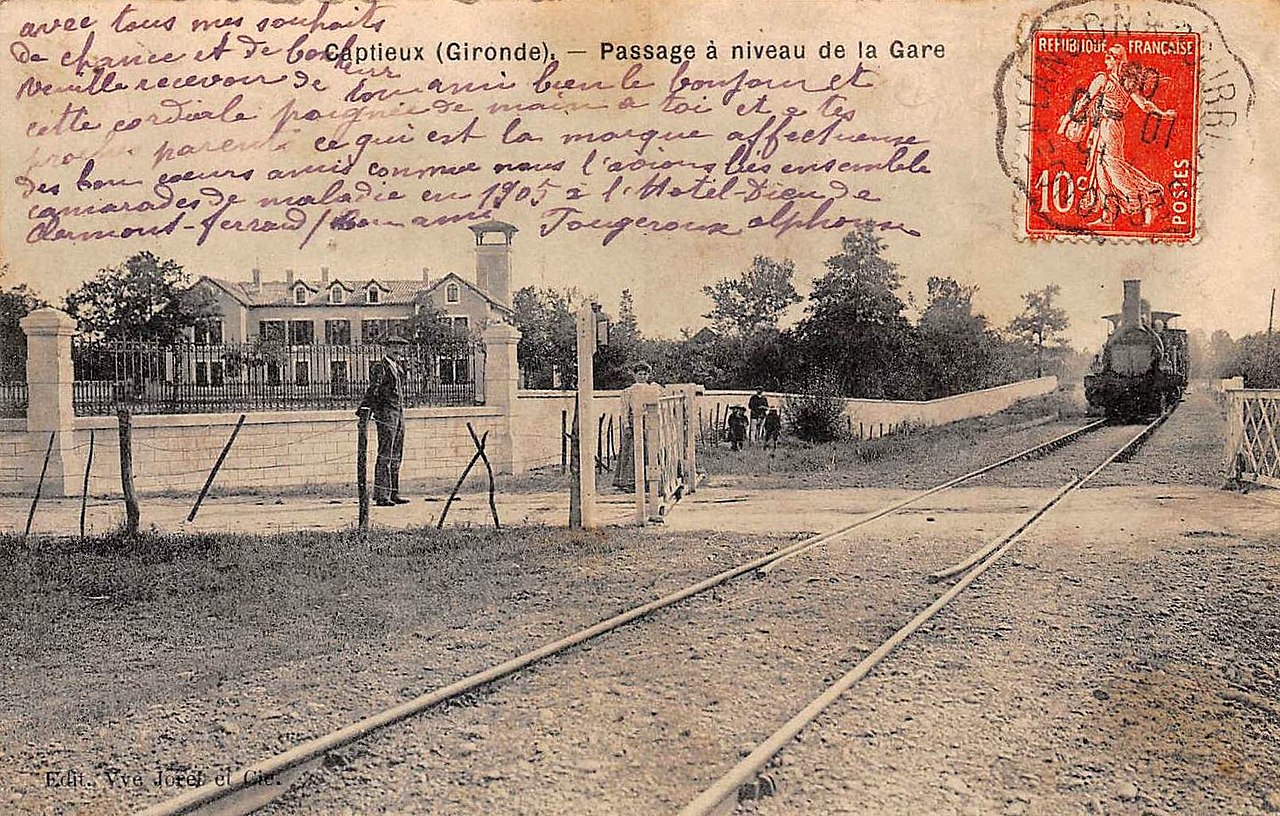 avec tous mes souhaits
de chance et de bonheur
Captieux (Gironde). — Passage à niveau de la Gare
veuille recevoir de ton ami bien le bonjour et
cette cordiale poignée de main a toi et a tes
parents ce qui est la marque affectueuse
des bon cœurs amis comme nous l'avions liés ensemble
camarades de maladie en 1905 à l'Hotel-Dieu de
Clermont-ferrand / ton ami Fougeroux alphonse
REPUBLIQUE FRANÇAISE
10c
POSTES
Edit. Vve Joret et Cie.